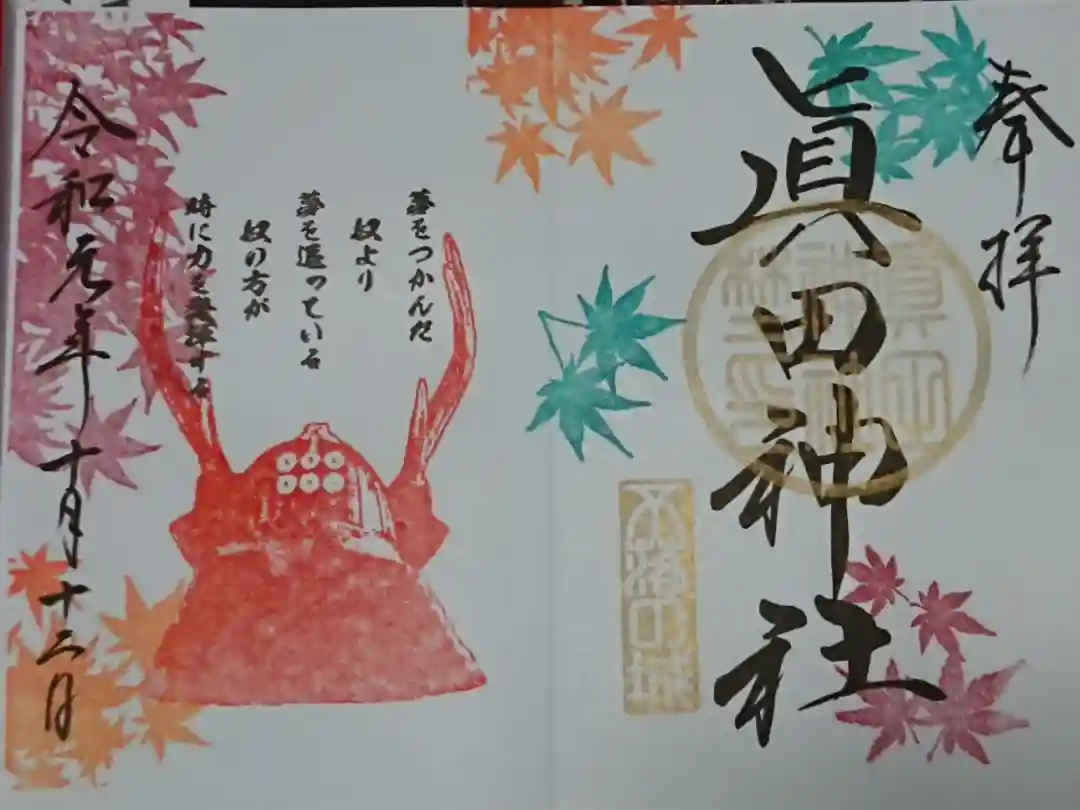 奉拝
眞田神社
眞田神社之印
不落の城
夢をつかんだ
奴より
夢を追っている
奴の方が
時に力を発揮する
令和元年十月十二日